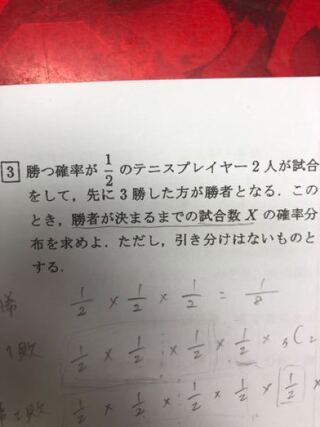 3 勝つ確率が 1/2 のテニスプレイヤー2人が試合
をして，先に3勝した方が勝者となる．この
とき，勝者が決まるまでの試合数 X の確率分
布を求めよ．ただし，引き分けはないものと
する．
勝 1/2 × 1/2 × 1/2 = 1/8
1敗 1/2 × 1/2 × 1/2 × 1/2 × ₃C₂
2敗 1/2 × 1/2 × 1/2 × 1/2 × 1/2 ×